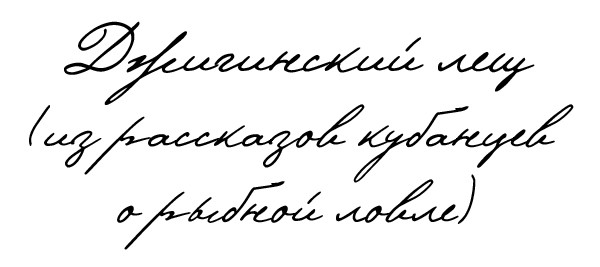 Джигинский лещ
(из рассказов кубанцев
о рыбной ловле)